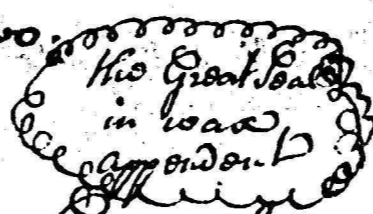 the Great Seal
in wax
appendent